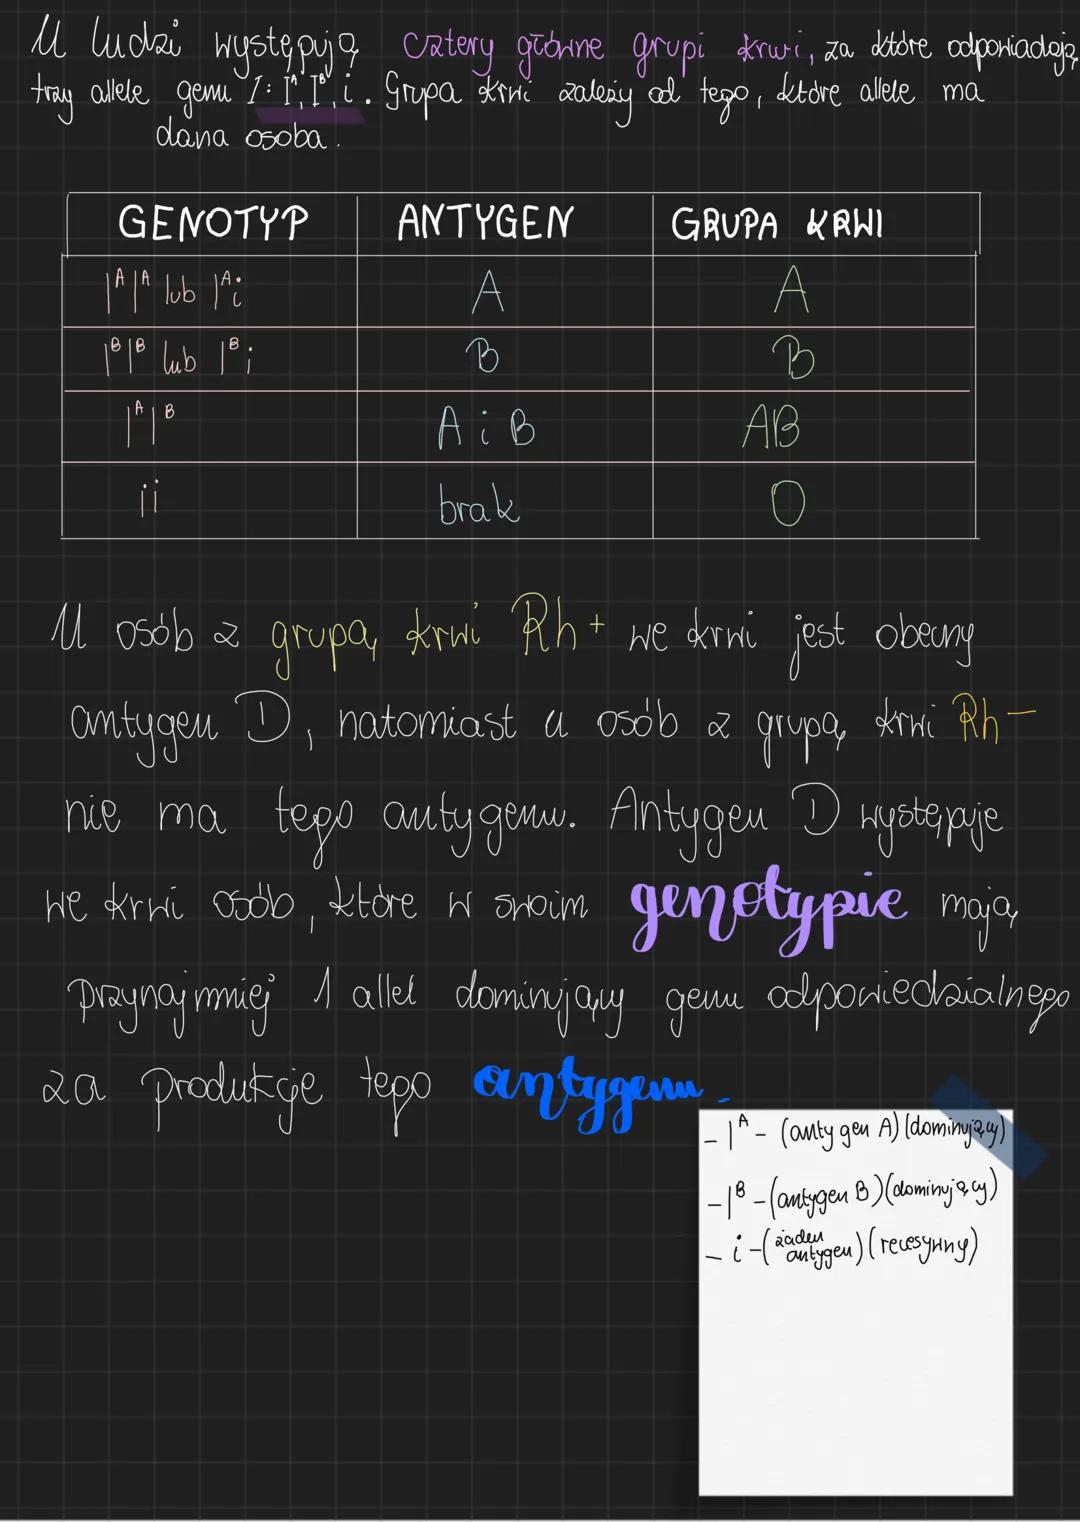 U ludzi występują cztery główne grupi krwi, za które odpowiadają
trzy allele genu I: Iᴬ, Iᴮ, i. Grupa krwi zależy od tego, które allele ma
dana osoba.
GENOTYP ANTYGEN GRUPA KRWI
IᴬIᴬ lub Iᴬi A A
IᴮIᴮ lub Iᴮi B B
IᴬIᴮ A i B AB
ii brak O
U osób z grupą krwi Rh+ we krwi jest obecny
antygen D, natomiast u osób z grupą krwi Rh-
nie ma tego antygenu. Antygen D występuje
we krwi osób, które w swoim genotypie mają
przynajmniej 1 allel dominujący genu odpowiedzialnego
za produkcje tego antygenu.
- Iᴬ - (antygen A) (dominujący)
- Iᴮ - (antygen B) (dominujący)
- i - (żaden antygen) (recesywny)